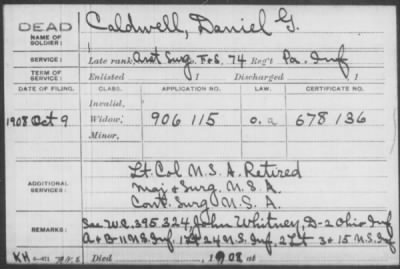 DEAD
NAME OF SOLDIER:
Caldwell, Daniel G.
SERVICE:
Late rank, Asst Surg. F&S. 74 Reg't Pa. Inf
TERM OF SERVICE:
Enlisted 1 Discharged 1
DATE OF FILING. CLASS. APPLICATION NO. LAW. CERTIFICATE NO.
Invalid,
1908 Oct 9 Widow, 906 115 O. a 678 136
Minor,
ADDITIONAL SERVICES:
Lt. Col U.S.A. Retired
Maj & Surg. U.S.A.
Cont. Surg U.S.A.
REMARKS:
See W.C. 395 324, John Whitney, D-2 Ohio Inf
A & B-11 U.S. Inf. 24 U.S. Inf. 2 Lt 3 & 15 U.S. Inf
KH Died , 1908 at